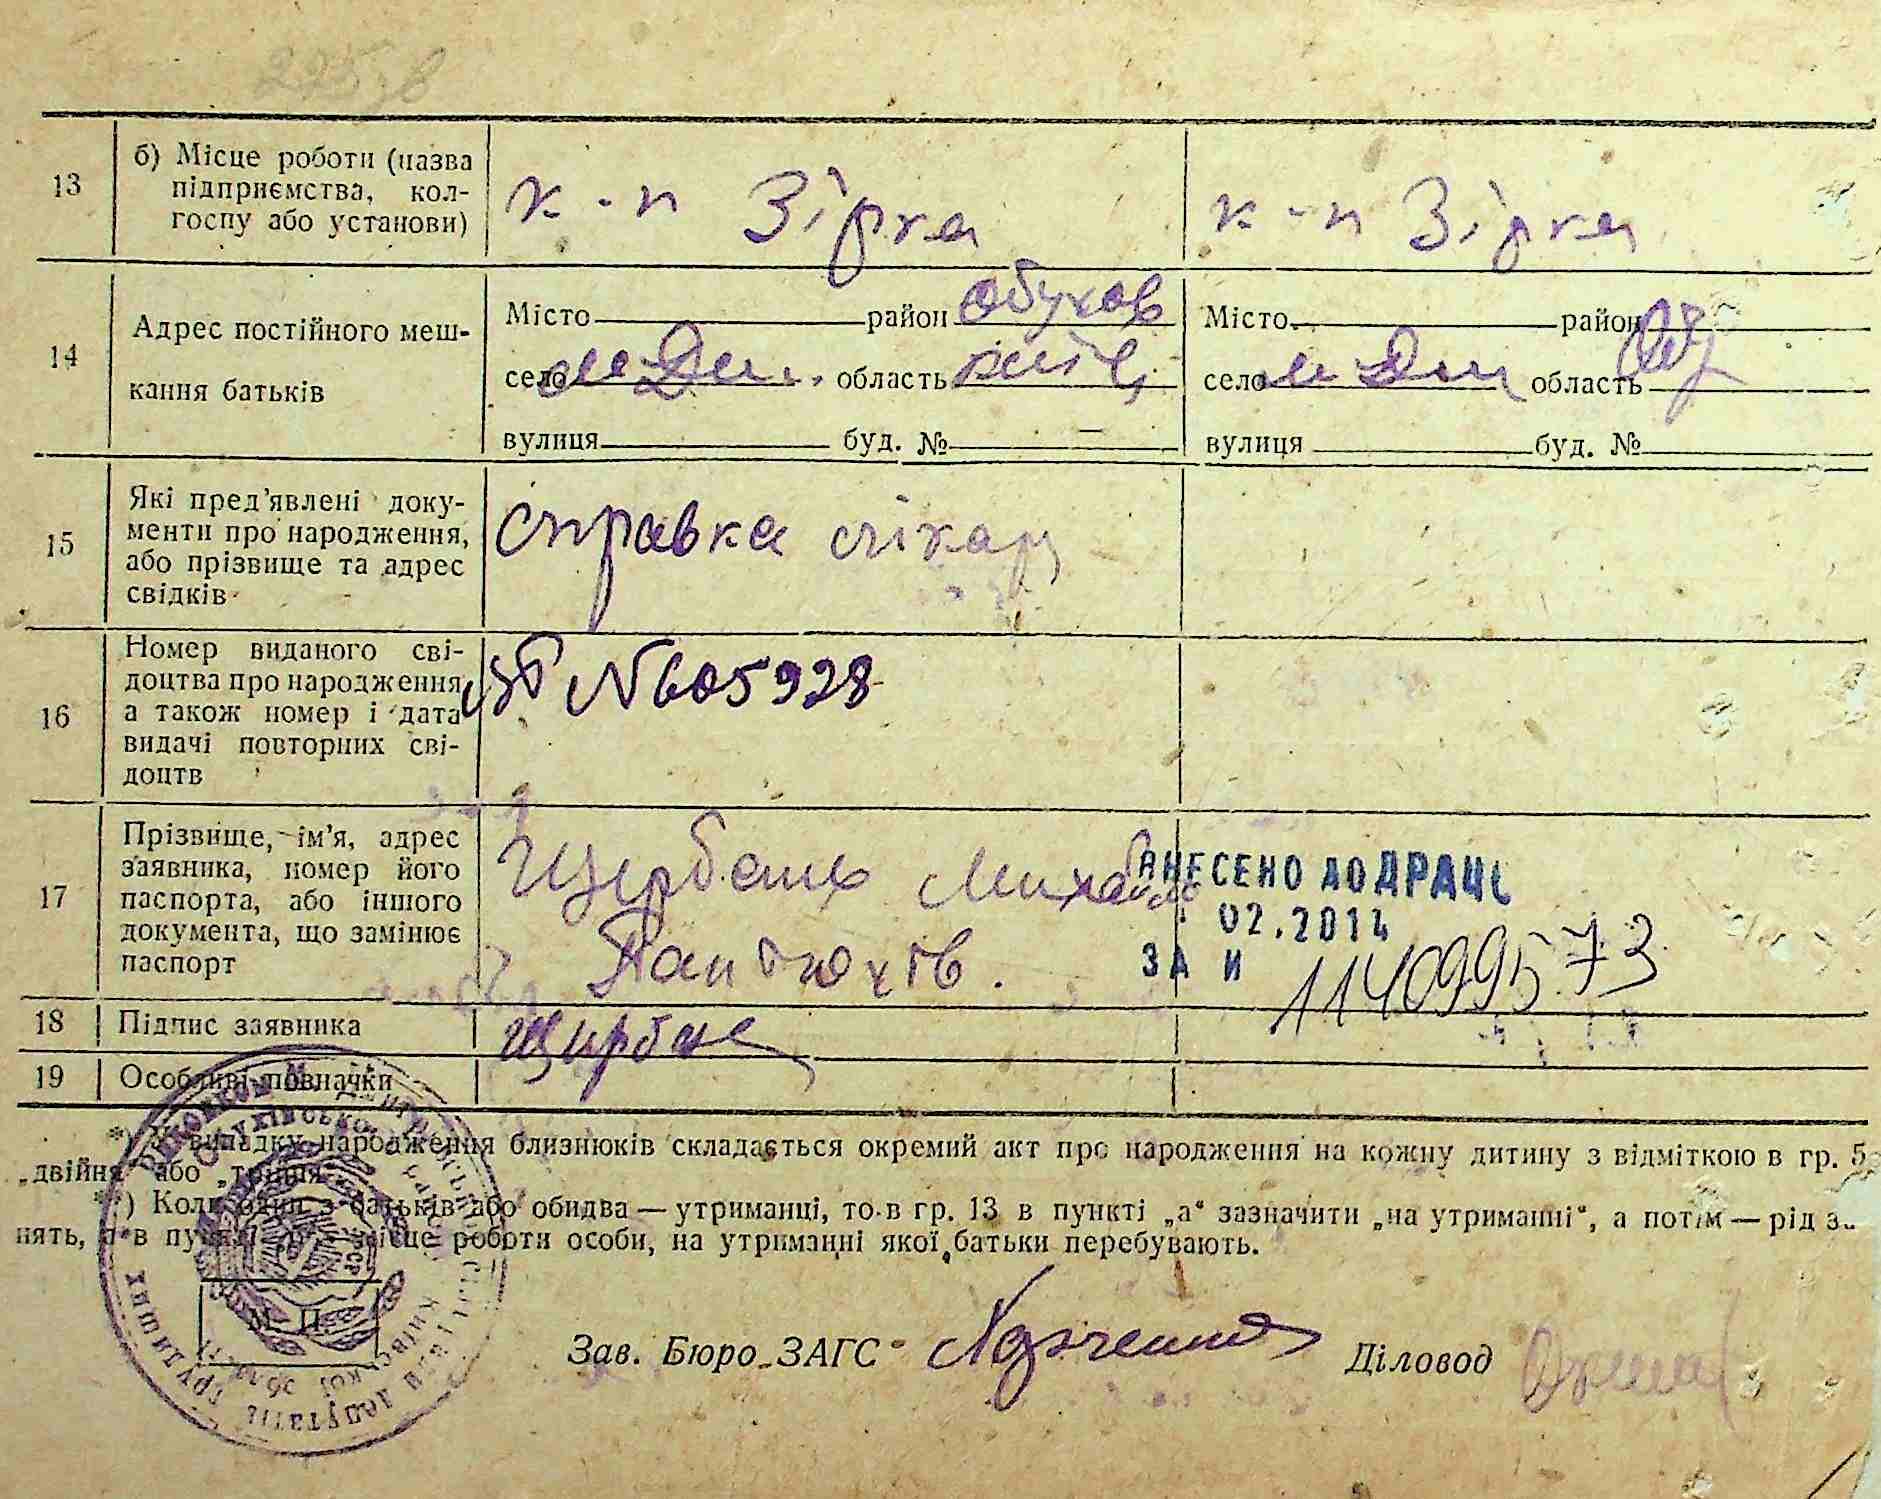 13
б) Місце роботи (назва
підприємства, кол-
госпу або установи)
к-п Зірка
к-п Зірка
14
Адрес постійного меш-
кання батьків
Місто район Обухов
село м Дми. область Київ
вулиця буд. № —
Місто район
село м Дми область
вулиця буд. №
15
Які пред'явлені доку-
менти про народження,
або прізвище та адрес
свідків
Справка лікар
16
Номер виданого сві-
доцтва про народження
а також номер і дата
видачі повторних сві-
доцтв
№605928
17
Прізвище, ім'я, адрес
заявника, номер його
паспорта, або іншого
документа, що замінює
паспорт
Щербань Михайло
ВНЕСЕНО ДО ДРАЦС
02.2014
ЗА И 114099573
18 Підпис заявника
19 Особливі позначки
*) У випадку народження близнюків складається окремий акт про народження на кожну дитину з відміткою в гр. 5
„двійня" або „трійня"
**) Коли один з батьків або обидва — утриманці, то в гр. 13 в пункті „а" зазначити „на утриманні", а потім — рід за-
нять, а в пункті місце роботи особи, на утриманні якої батьки перебувають.
М. П.
Зав. Бюро ЗАГС
Діловод